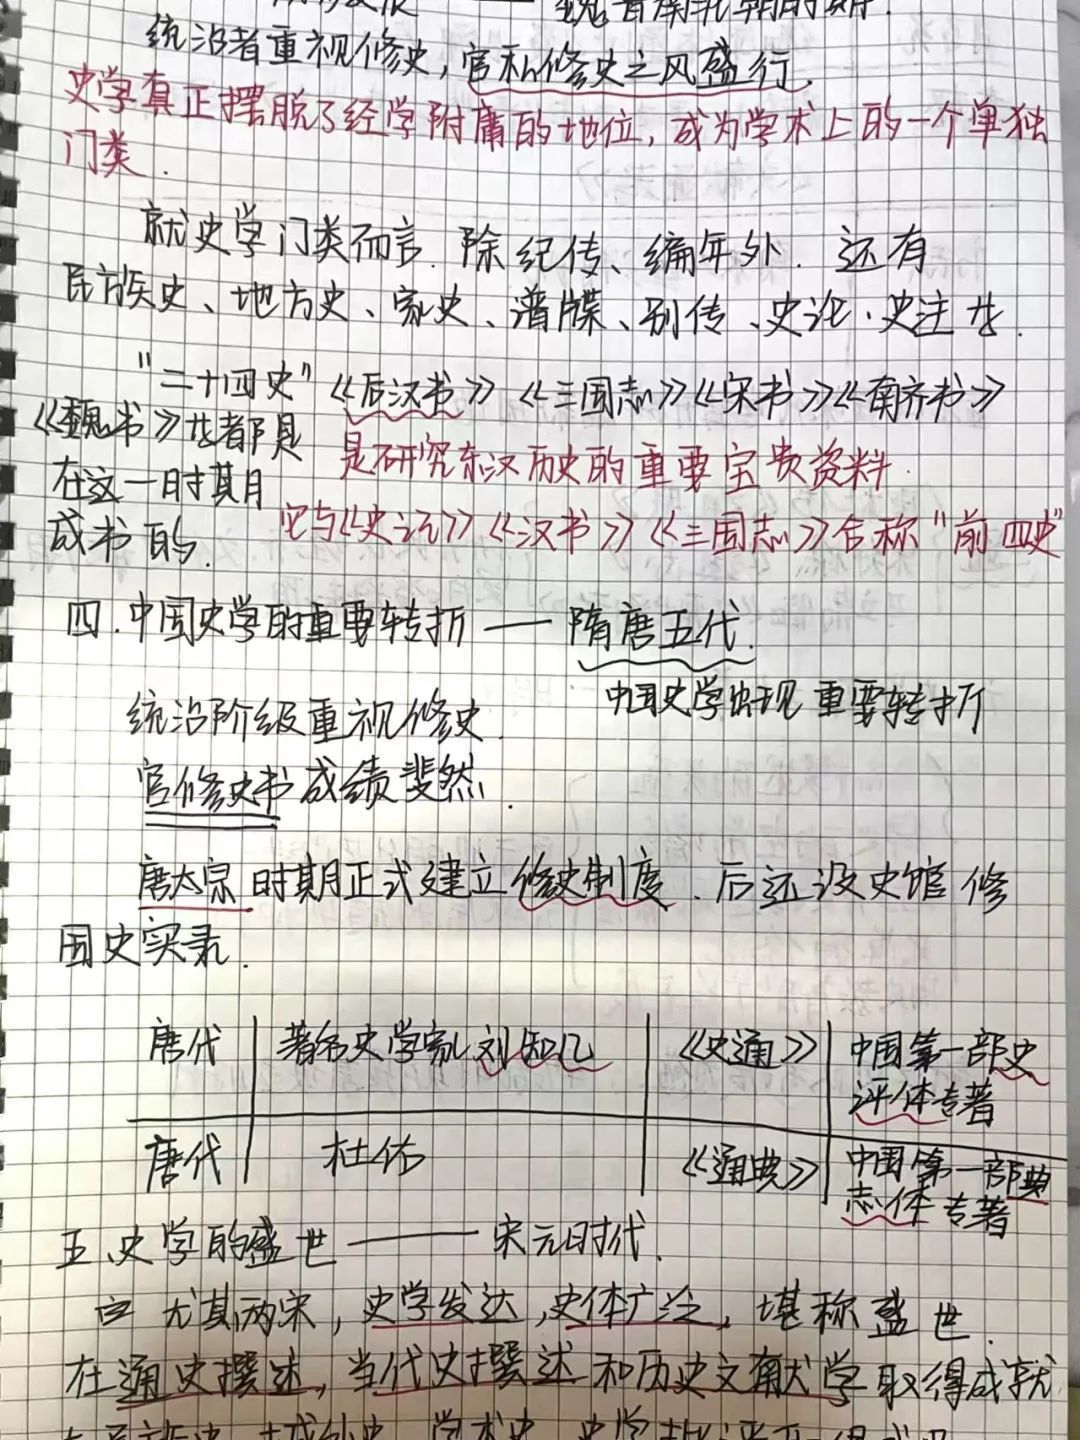 魏晋南北朝时期.
统治者重视修史,官私修史之风盛行.
史学真正摆脱了经学附庸的地位,成为学术上的一个单独
门类.
就史学门类而言.除纪传、编年外.还有
民族史、地方史、家史、谱牒、别传、史论.史注 等.
"二十四史"《后汉书》《三国志》《宋书》《南齐书》
《魏书》等都是
在这一时期
成书的.
是研究东汉历史的重要宝贵资料.
它与《史记》《汉书》《三国志》合称"前四史"
四.中国史学的重要转折——隋唐五代.
中国史学出现 重要转折
统治阶级重视修史.
官修史书成绩斐然.
唐太宗 时期正式建立修史制度.后还设史馆 修
国史实录.
唐代 著名史学家刘知几 《史通》 中国第一部史
评体专著
唐代 杜佑 《通典》 中国第一部典
志体专著
五.史学的盛世——宋元时代.
尤其两宋,史学发达,史体广泛,堪称盛世.
在通史撰述,当代史撰述和历史文献学取得成就